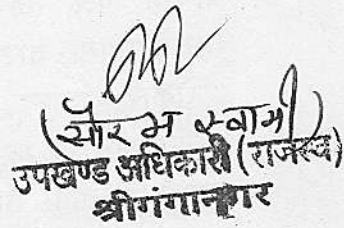 (सौरभ स्वामी)
उपखण्ड अधिकारी (राजस्व)
श्रीगंगानगर